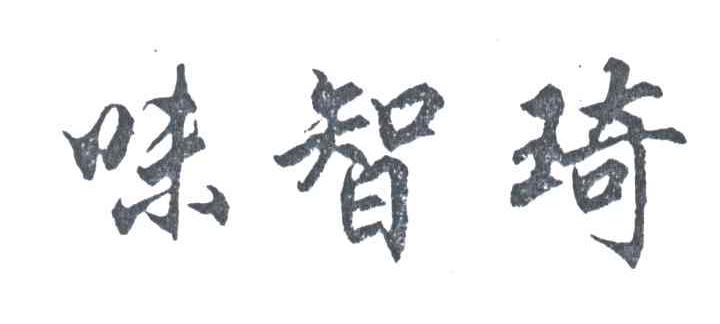 味智琦